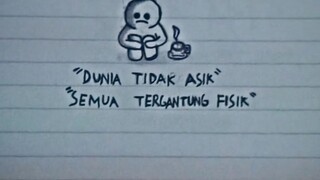 "DUNIA TIDAK ASIK"
"SEMUA TERGANTUNG FISIK"